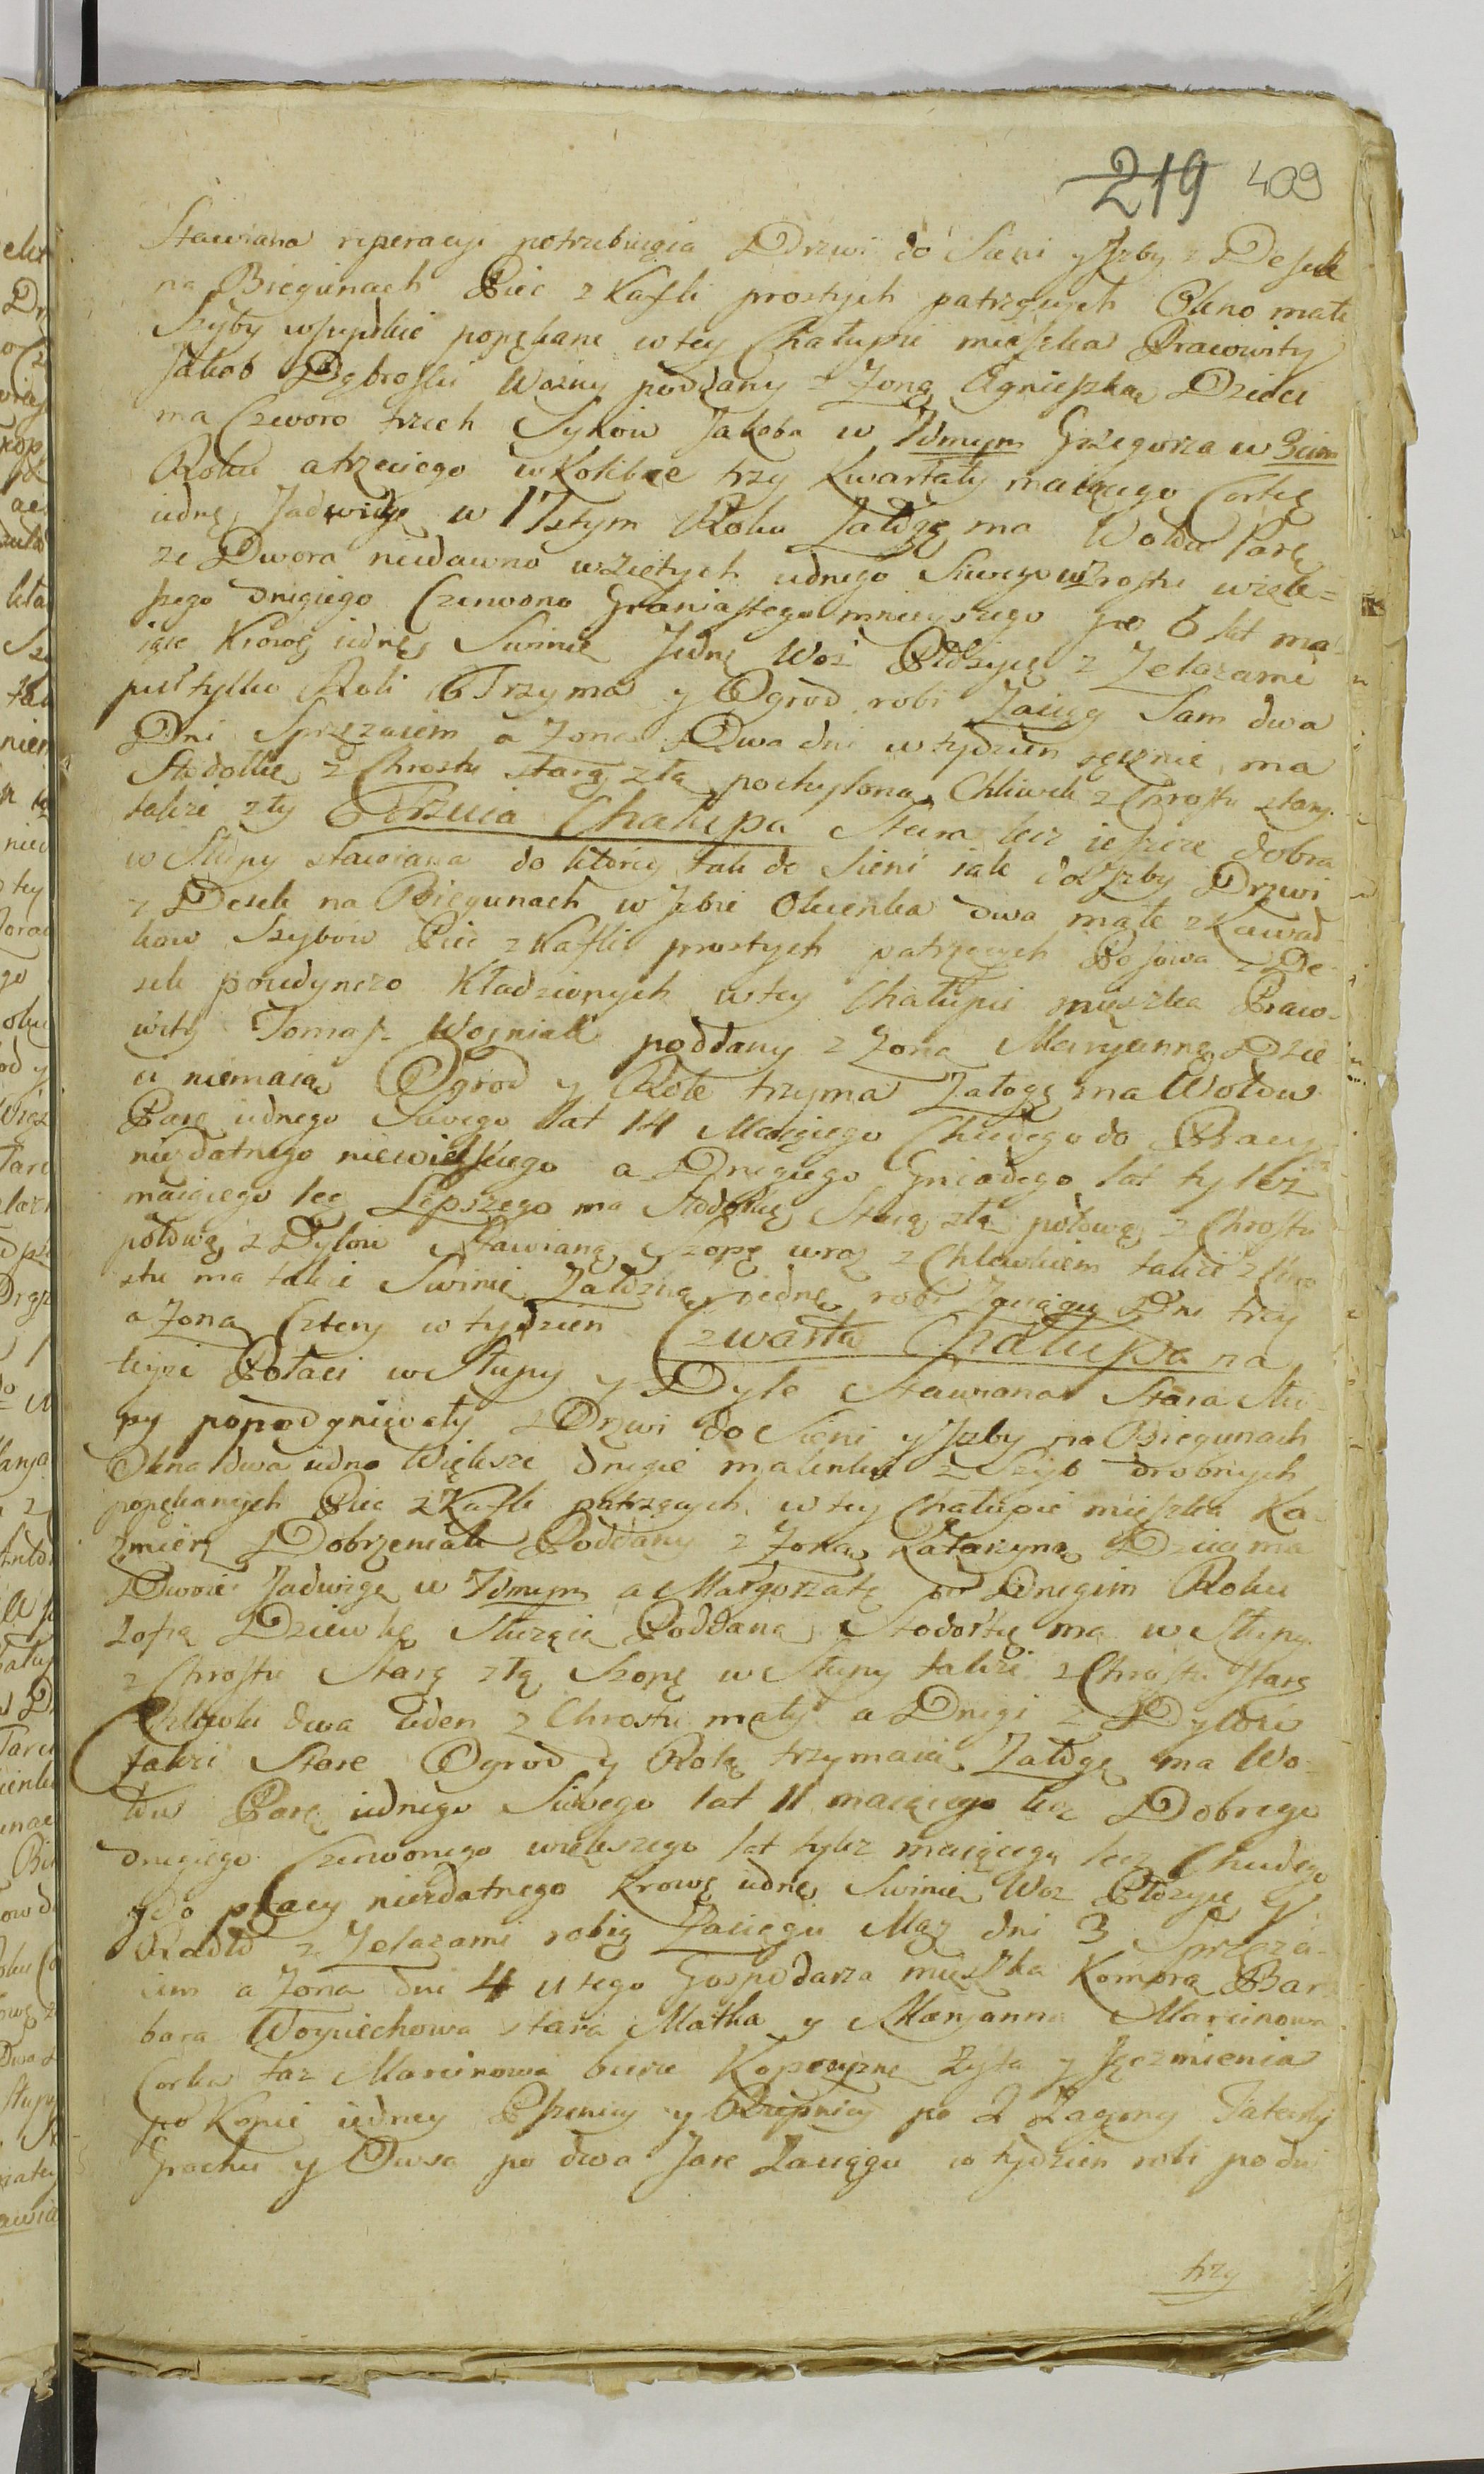 219 409
Stawiana reperacyi potrzebuiąca Drzwi do Sieni y Jzby z Desek
na Biegunach Piec z Kafli prostych patrzących Okno małe
Szyby wszystkie popękane w tey Chałupie mieszka Pracowity
Jakob Dębroski Wozny poddany z Zoną Agnieszką Dzieci
ma Czworo trzech Synow Jakoba w 7dmym Grzegorza w 3cim
Roku a trzeciego w Kolibce trzy Kwartały maiącego Corkę
iednę Jadwigę w 17stym Roku Załogę ma Wołow Parę
ze Dwora niedawno wziętych iednego Siwego wzrostu więk=
szego drugiego Czerwono Graniastego mnieyszego po 6 lat ma
iące Krowę iednę Swinię Jednę Woz Płozycę z Zelazami
puł tylko Roli Trzyma y Ogrod robi Zaciąg Sam dwa
Dni Sprzęzaiem a Zona Dwa dni w tydzien ręcznie ma
Stodołkę z Chrostu starą złą pochyloną Chliwek z Chrostu stary
takze zły Trzecia Chałupa Stara lecz ieszcze dobra
w Słupy stawiana do ktorey tak do Sieni iak do Jzby Drzwi
z Desek na Biegunach w Jzbie Okienka dwa małe z Kawał
kow Szybow Piec z Kafli prostych patrzących Posowa z De-
sek poiedynczo Kładzionych w tey Chałupie mieszka Praco-
wity Tomasz Wozniak poddany z Zoną Maryanną Dzie
ci niemaią Ogrod y Rolę trzyma Załogę ma Wołow
Parę iednego Siwego lat 14 Maiącego Chudego do Pracy
niezdatnego niewielkiego a Drugiego Gniadego lat tyleż
maiącego lecz Lepszego ma Stodołkę Starą złą połowę z Chrostu
połowę z Dylow Stawianą Szopę wraz z Chlewkiem takze z Chro
stu ma takze Swinię Załozną iednę robi Zaciągu Dni trzy
a Zona Cztery w tydzien Czwarta Chałupa na
teyze Połaci w Słupy y Dyle Stawiana Stara Słu-
py popodgniwały Drzwi do Sieni y Jzby na Biegunach
Okna dwa iedno Większe drugie malenkie z Szyb drobnych
popękanych Piec z Kafli patrzących w tey Chałupie mieszka Ka-
zmierz Dobrzeniak Poddany z Zoną Katarzyną Dzieci ma
Dwoie Jadwigę w 7dmym a Małgorzatę w Drugim Roku
Zofią Dziewkę Służącą Poddaną Stodołkę ma w Słupy
z Chrostu Starą złą Szopę w Słupy takze z Chrostu Starą
Chlewki dwa ieden z Chrostu mały a Drugi z Dylow
takze Stare Ogrod y Rolą trzymaią Załogę ma Wo-
łow Parę iednego Siwego lat 11 maiącego lecz Dobrego
drugiego Czerwonego większego lat tylez maiącego lecz Chudego
y do pracy niezdatnego Krowę iednę Swinię Woz Płozycę y
Radło z Zelazami robią Zaciągu Mąz dni 3 Sprzęza-
iem a Zona dni 4 u tego Gospodarza mieszka Komorą Bar
bara Woyciechowa stara Matka y Maryanna Marcinowa
Corka taz Marcinowa bierze Kopczyznę Zyta y Jęczmienia
po Kopie iedney Pszenicy y Rzepnicy po 2 Zagony Tatarki
Grochu y Owsa po dwa Jare Zaciągu w tydzien robi po dni
trzy